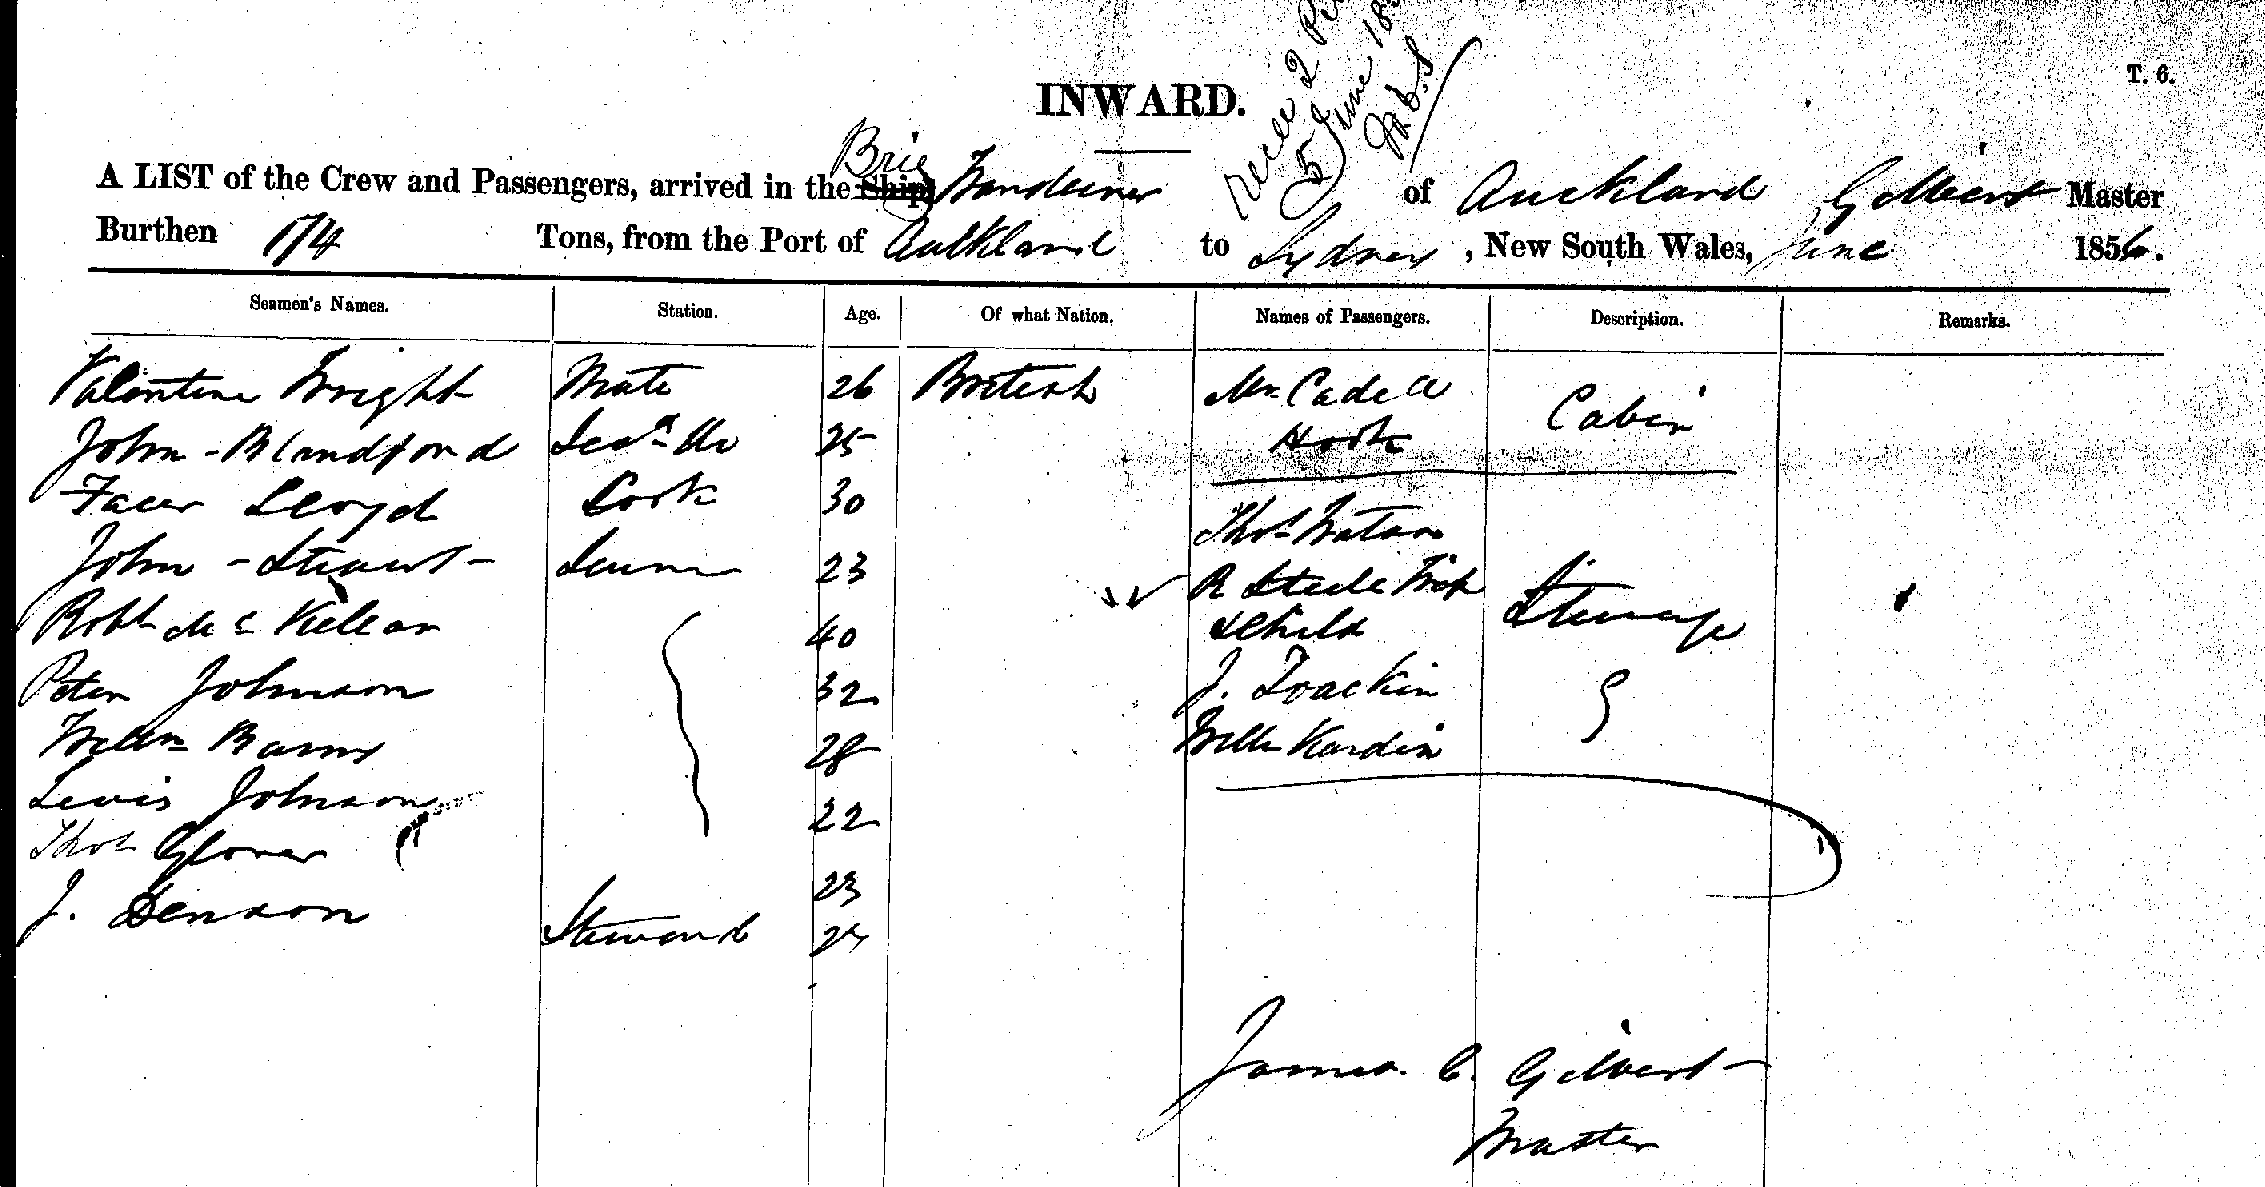 T. 6.
INWARD.
June
A LIST of the Crew and Passengers, arrived in the Ship Brig Wanderer of Auckland Gilbert Master
Burthen 174 Tons, from the Port of Auckland to Sydney, New South Wales, June 1856.
Seamen's Names. Station. Age. Of what Nation. Names of Passengers. Description. Remarks.
Valentine Wright Mate 26 British Mr Cadell Cabin
John Blandford Secd do 25 Hook
Lloyd Cook 30
John Stewart 23 Thos Watson
Robt Mc Kellar 40 R Steele Wife Steerage
& Child
Peter Johnson 32 J.
Willm Barns 28 Willm
Lewis Johnson 22
Thos Glover 23
J. Denson Steward 25
James C. Gilbert
Master